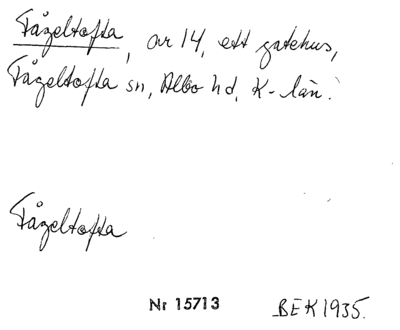 Fågeltofta, nr 14, ett gatehus,
Fågeltofta sn, Albo hd, K-län.
Fågeltofta
Nr 15713 BEK 1935.